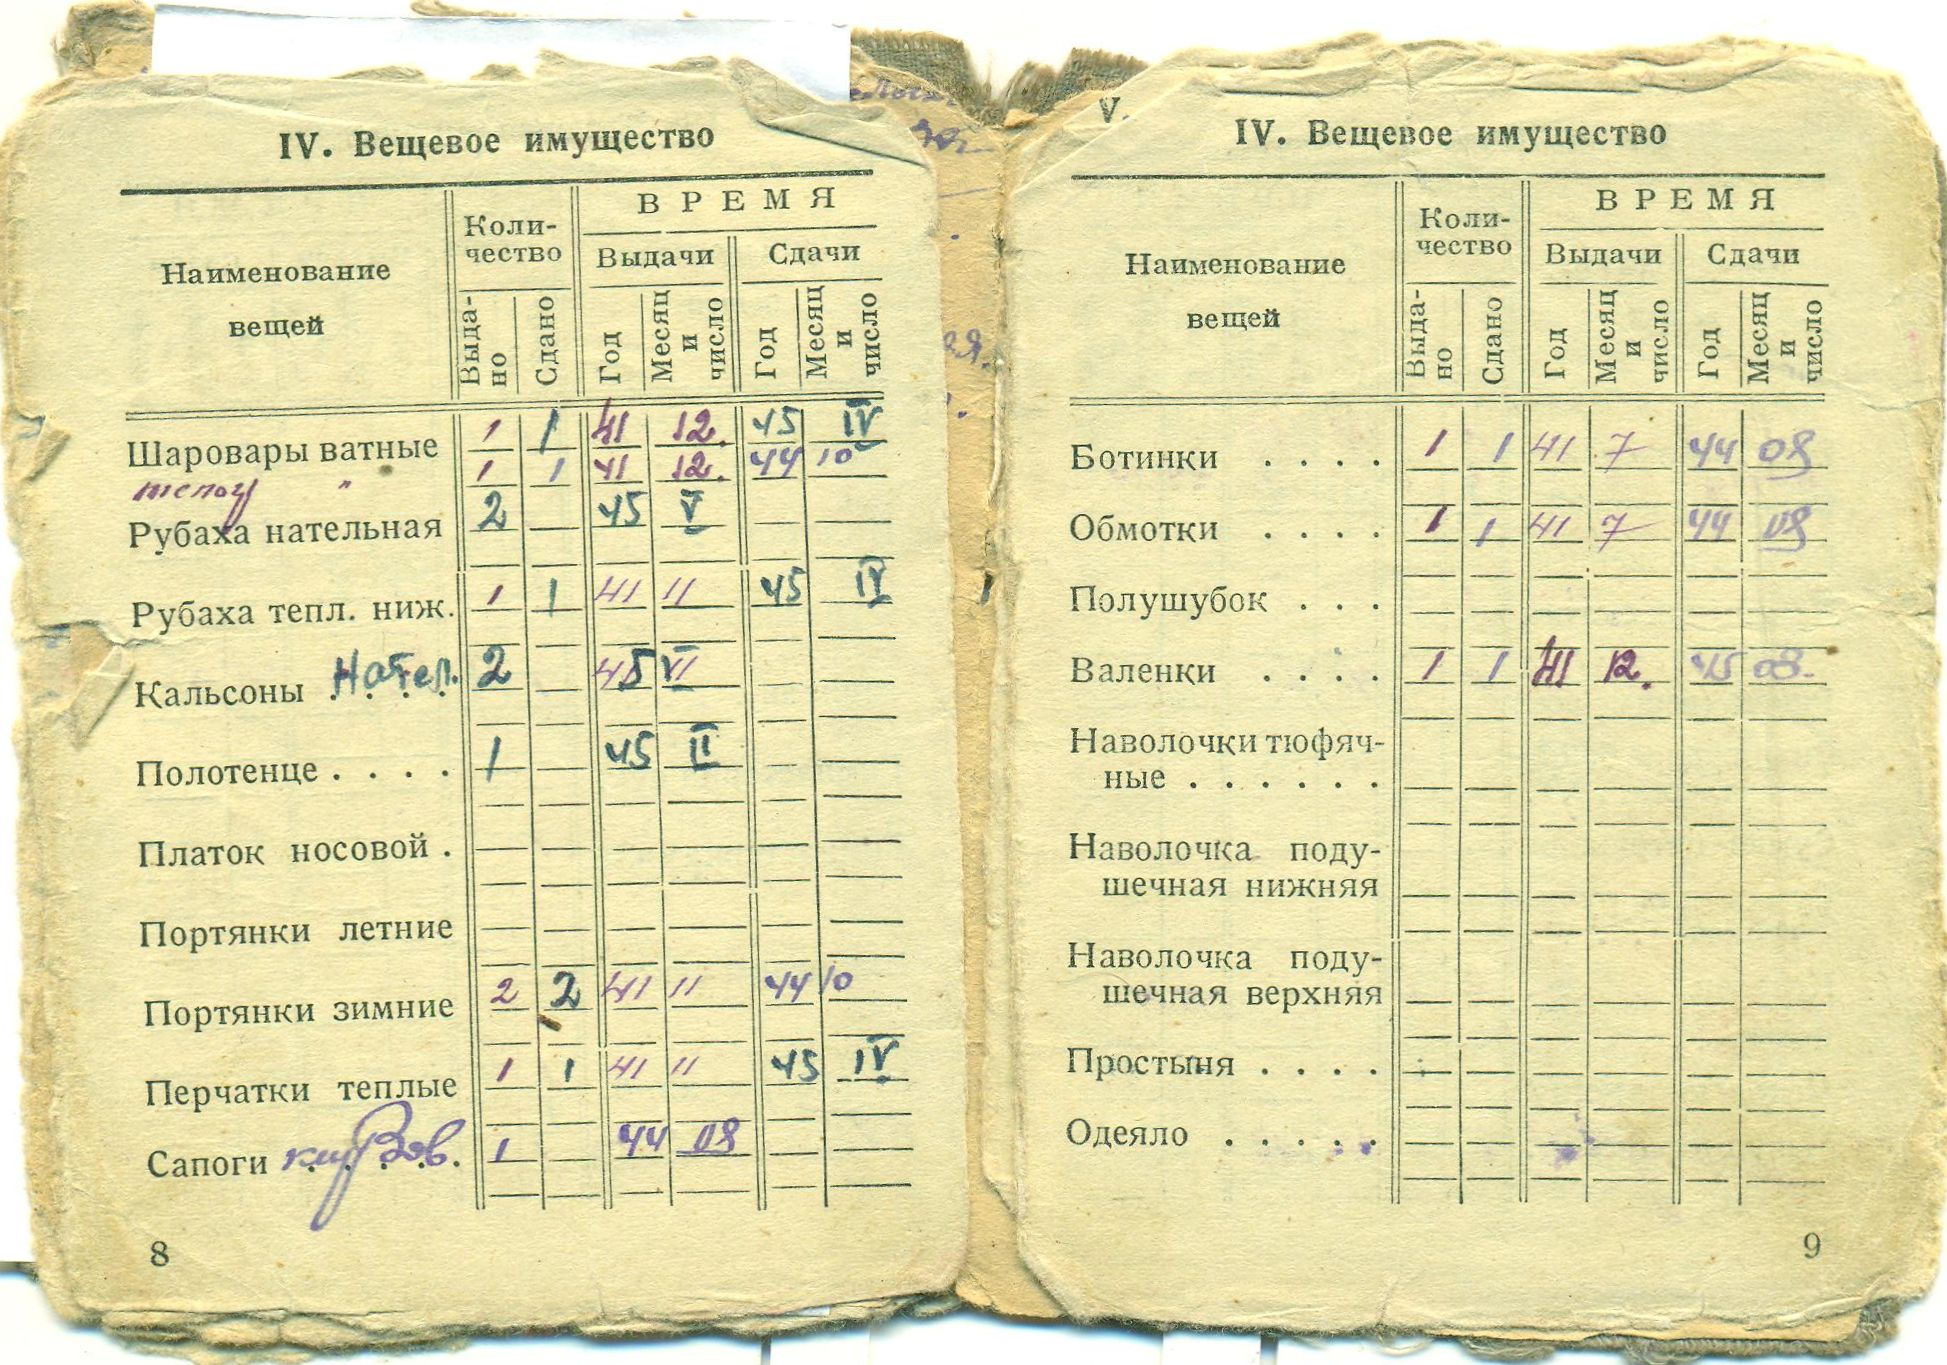 IV. Вещевое имущество
Наименование вещей
Коли-
чество
ВРЕМЯ
Выдачи
Сдачи
Выда-
но
Сдано
Год
Месяц
и
число
Год
Месяц
и
число
Шаровары ватные 1 1 41 12. 45 IV
" 1 1 41 12. 44 10
Рубаха нательная 2 45 V
Рубаха тепл. ниж. 1 1 41 11 45 IV
Кальсоны Нател. 2 45 VI
Полотенце . . . . 1 45 II
Платок носовой .
Портянки летние
Портянки зимние 2 2 41 11 44 10
Перчатки теплые 1 1 41 11 45 IV
Сапоги . . . . 1 44 08
8
V.
IV. Вещевое имущество
Наименование
вещей
Коли-
чество
ВРЕМЯ
Выдачи
Сдачи
Выда-
но
Сдано
Год
Месяц
и
число
Год
Месяц
и
число
Ботинки . . . . 1 1 41 7 44 08
Обмотки . . . . 1 1 41 7 44 08
Полушубок . . .
Валенки . . . . 1 1 41 12. 45 03.
Наволочки тюфяч-
ные . . . . . .
Наволочка поду-
шечная нижняя
Наволочка поду-
шечная верхняя
Простыня . . . .
Одеяло . . . . .
9